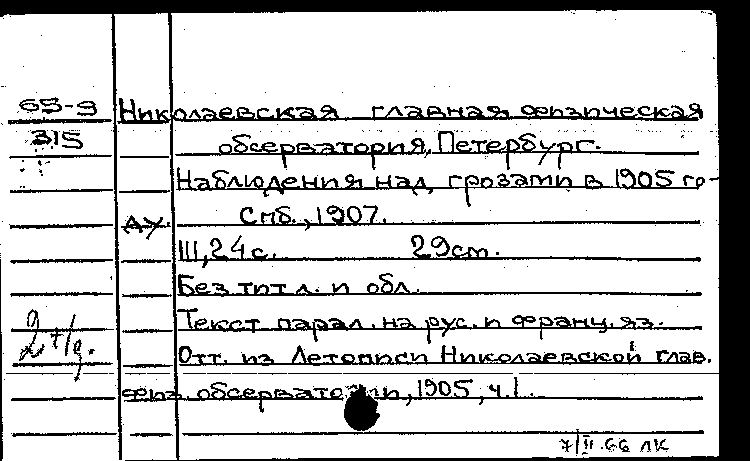 65-9 Николаевская главная физическая
315 обсерватория, Петербург.
Наблюдения над грозами в 1905 го-
АУ. Спб., 1907.
III, 24 с. 29 cm.
Без тит л. и обл.
Текст парал. на рус. и франц. яз.
Отт. из Летописи Николаевской глав.
физ. обсерватории, 1905, ч. I.
7/II.66 ЛК